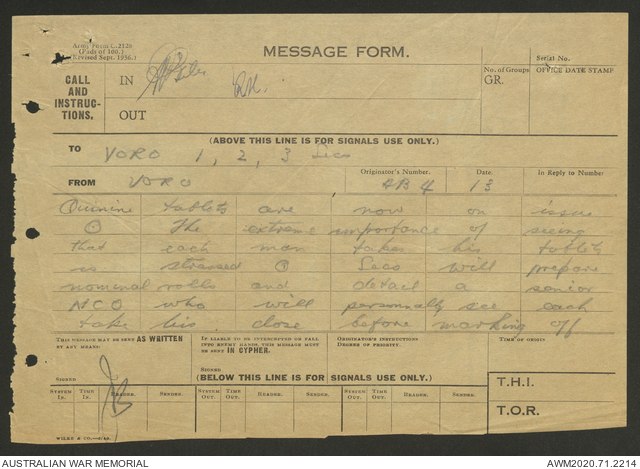 Army Form C.2128
(Pads of 100.)
(Revised Sept. 1936.)
MESSAGE FORM.
Serial No.
CALL AND INSTRUC-TIONS.
IN
No. of Groups
GR.
OFFICE DATE STAMP
OUT
(ABOVE THIS LINE IS FOR SIGNALS USE ONLY.)
TO VORO 1, 2, 3 Secs
FROM VORO
Originator's Number. AB4
Date. 13
In Reply to Number
Quinine tablets are now on issue
⊙ The extreme importance of seeing
that each man takes his tablets
is stressed ⊙ Secs will prepare
nominal rolls and detail a senior
NCO who will personally see each
take his close before marking off
THIS MESSAGE MAY BE SENT AS WRITTEN BY ANY MEANS.
IF LIABLE TO BE INTERCEPTED OR FALL INTO ENEMY HANDS, THIS MESSAGE MUST BE SENT IN CYPHER.
ORIGINATOR'S INSTRUCTIONS
DEGREE OF PRIORITY.
TIME OF ORIGIN
SIGNED
SIGNED
(BELOW THIS LINE IS FOR SIGNALS USE ONLY.)
T.H.I.
SYSTEM IN. TIME IN. READER. SENDER. SYSTEM OUT. TIME OUT. READER. SENDER. SYSTEM OUT. TIME OUT. READER. SENDER.
T.O.R.
AUSTRALIAN WAR MEMORIAL
AWM2020.71.2214